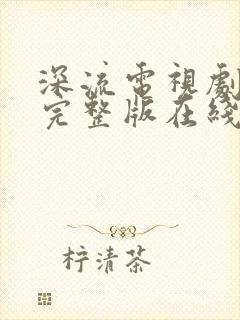 深流電視劇
完整版在綫
柠清茶